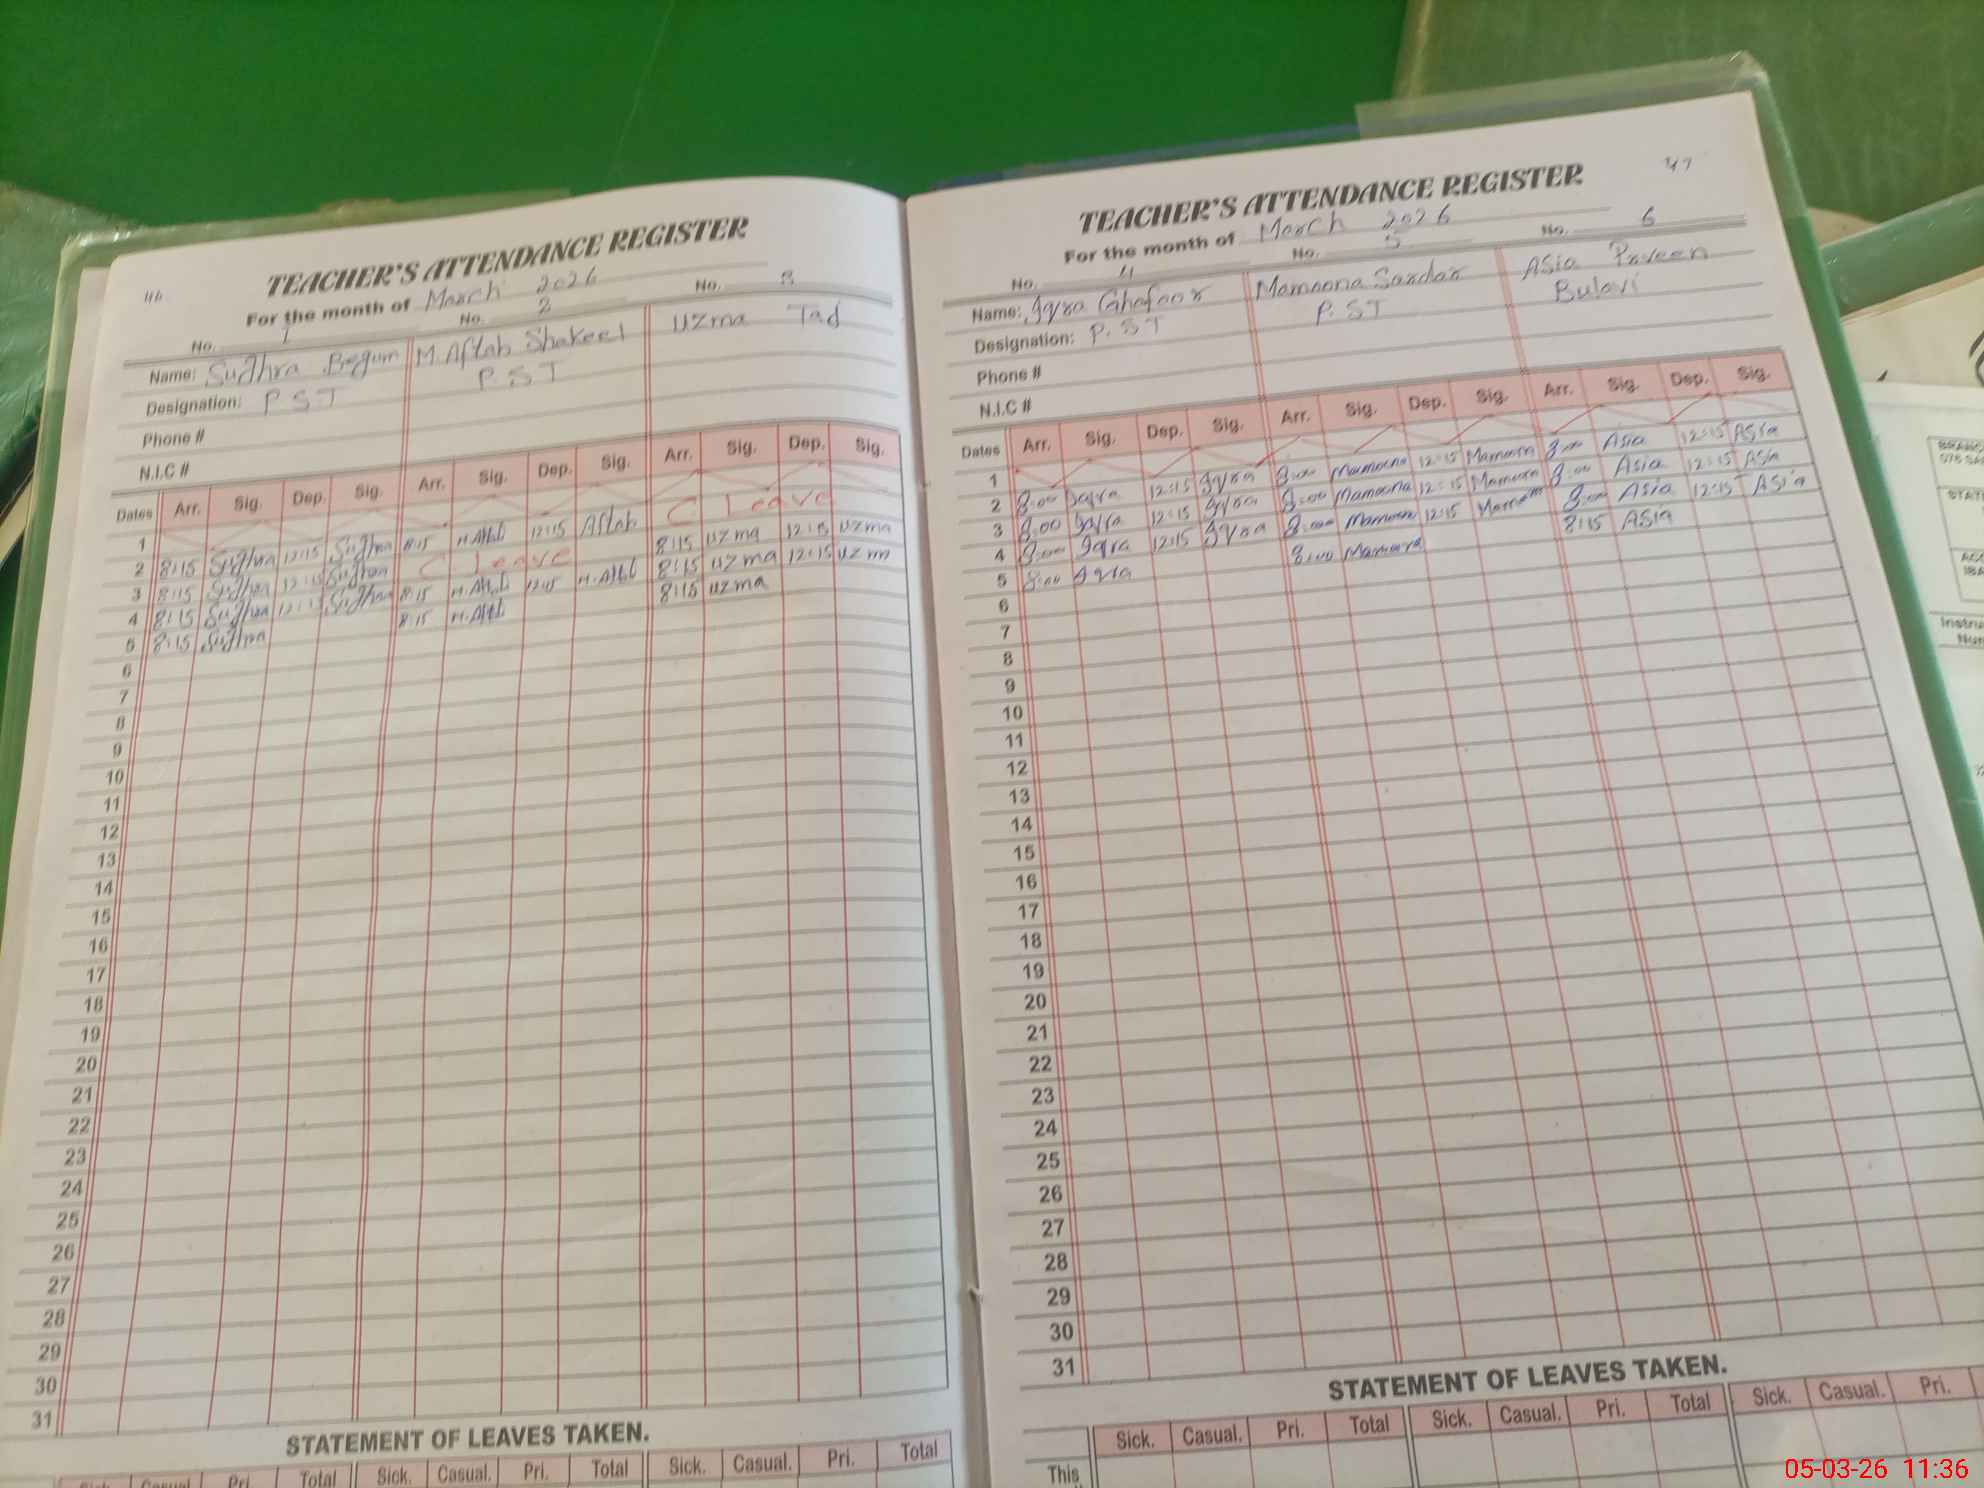 46
TEACHER'S ATTENDANCE REGISTER
For the month of March 2026
No. 1 No. 2 No. 3
Name: Sughra Begum M. Aftab Shakeel Uzma Taj
Designation: P S T P. S T
Phone #
N.I.C #
Dates Arr. Sig. Dep. Sig. Arr. Sig. Dep. Sig. Arr. Sig. Dep. Sig.
1
2 8:15 Sughra 12:15 Sughra 8:15 M. Aftab 12:15 Aftab C Leave
3 8:15 Sughra 12:15 Sughra C Leave 8:15 Uzma 12:15 Uzma
4 8:15 Sughra 12:15 Sughra 8:15 M. Aftab 12:15 M. Aftab 8:15 Uzma 12:15 Uzma
5 8:15 Sughra 8:15 M. Aftab 8:15 Uzma
6
7
8
9
10
11
12
13
14
15
16
17
18
19
20
21
22
23
24
25
26
27
28
29
30
31
STATEMENT OF LEAVES TAKEN.
Sick. Casual. Pri. Total Sick. Casual. Pri. Total Sick. Casual. Pri. Total
47
TEACHER'S ATTENDANCE REGISTER
For the month of March 2026
No. 4 No. 5 No. 6
Name: Iqra Ghafoor Mamoona Sardar Asia Praveen
Designation: P. S T P. S T Bulavi
Phone #
N.I.C #
Dates Arr. Sig. Dep. Sig. Arr. Sig. Dep. Sig. Arr. Sig. Dep. Sig.
1
2 8:00 Iqra 12:15 Iqra 8:00 Mamoona 12:15 Mamoona 8:00 Asia 12:15 Asia
3 8:00 Iqra 12:15 Iqra 8:00 Mamoona 12:15 Mamoona 8:00 Asia 12:15 Asia
4 8:00 Iqra 12:15 Iqra 8:00 Mamoona 12:15 Mamoona 8:00 Asia 12:15 Asia
5 8:00 Iqra 8:00 Mamoona 8:15 Asia
6
7
8
9
10
11
12
13
14
15
16
17
18
19
20
21
22
23
24
25
26
27
28
29
30
31
STATEMENT OF LEAVES TAKEN.
Sick. Casual. Pri. Total Sick. Casual. Pri. Total Sick. Casual. Pri.
This
05-03-26 11:36